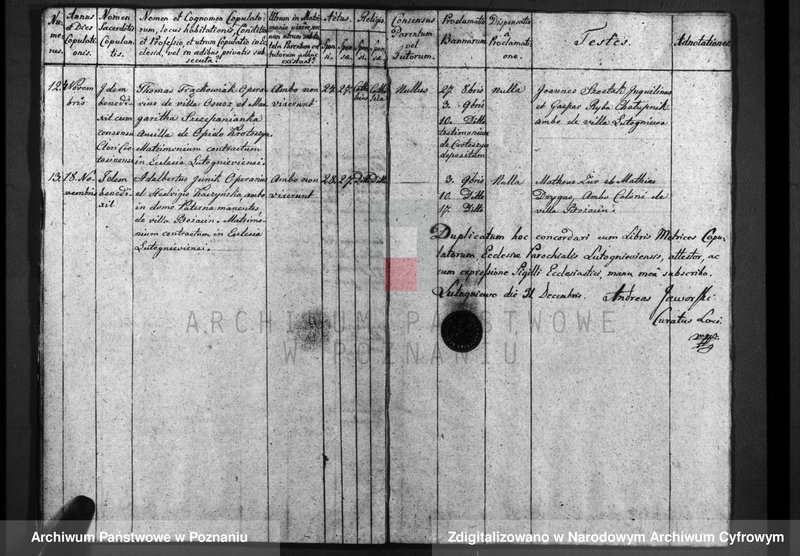 Nu-
me-
rus.
Annus
et Dies
Copulati-
onis.
Nomen
Sacerdotis
Copulan-
tis.
Nomen et Cognomen Copulato-
rum, locus habitationis, Conditio
et Professio et utrum Copulatio in Ec-
clesia, vel in aedibus privatis sub-
secuta.
Utrum in Matri-
monio vixere,
non utrum
Parentum vel
tutorum
existant?
Aetas.
Spon-
si.
Spon-
sa.
Religio
Spon-
si.
Spon-
sa.
Consensus
Parentum
vel
Tutorum.
Proclamatio
Bannorum.
Dispensatio
a
Proclamati-
one.
Testes.
Adnotationes
12.
Novem
bris
Idem
benedi-
xit cum
consensu
Thomas Frąckowiak Opera-
rius de villa Osusz et Mar-
garitha Szczepanianka
Ancilla de Opido Krotoszyn.
Matrimonium contractum
in Ecclesia Lutognieviensi.
Ambo non
vixerunt
27.
Catho
Nullus
27. 8bris
3. 9bris
10. Ditto
testimonium
de
depositam
Nulla
Joannes Szostak Inquilinus
et Gaspar Ryba Chałupnik
ambo de villa Lutogniew
13.
18. No-
vembris
Idem
benedi-
xit
Adalbertus Junik Operarius
et Hedvigis Kaczyńska, ambo
in domo Paterna manentes
de villa Bożacin. Matrimo-
nium contractum in Ecclesia
Lutognieviensi.
Ambo non
vixerunt
28.
27.
Ditto
Ditto
3. 9bris
10. Ditto
17. Ditto
Nulla
Matheus Żur et Mathias
Drygas, Ambo Coloni de
villa Bożacin.
Duplicatum hoc concordari cum Libris Metrices Copu-
latorum Ecclesiae Parochialis Lutognieviensis, attestor, ac
cum expressione Sigilli Ecclesiastici, manu mea subscribo.
Lutogniewo die 31 Decembris. Andreas Jaworski
Curatus Loci.
mpp
ARCHIWUM PAŃSTWOWE
W POZNANIU
Archiwum Państwowe w Poznaniu
Zdigitalizowano w Narodowym Archiwum Cyfrowym